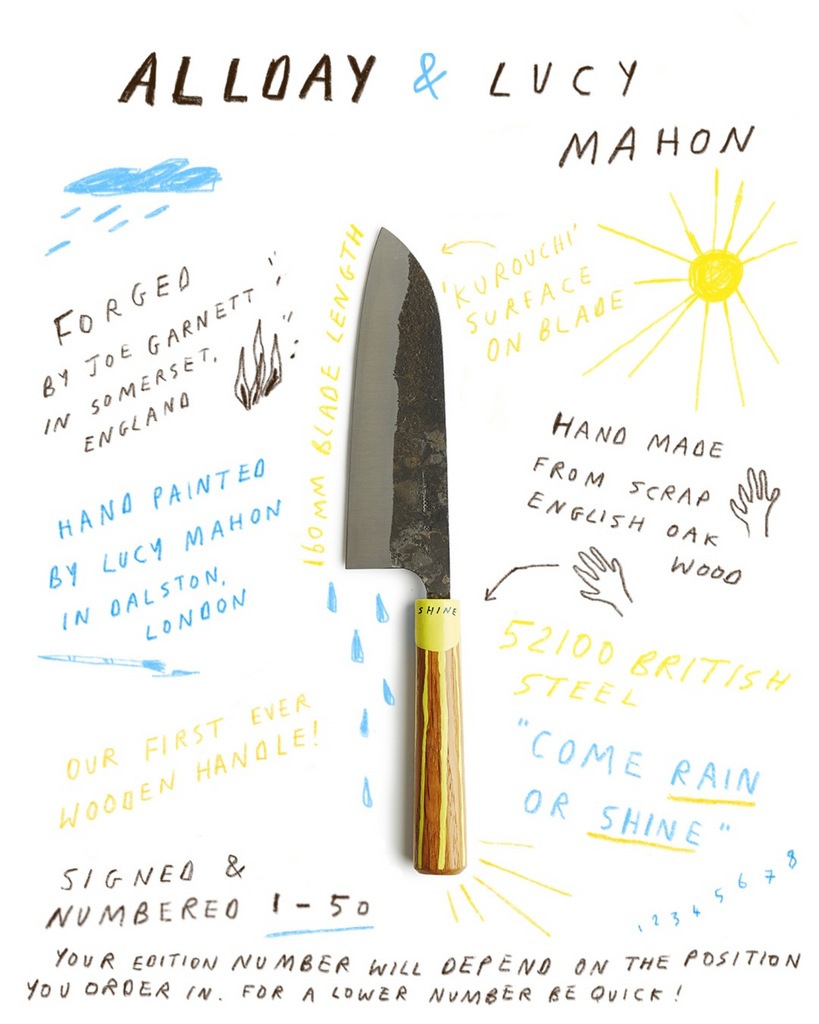 ALLDAY & LUCY
MAHON
FORGED
BY JOE GARNETT
IN SOMERSET,
ENGLAND
160MM BLADE LENGTH
'KUROUCHI'
SURFACE
ON BLADE
HAND PAINTED
BY LUCY MAHON
IN DALSTON,
LONDON
HAND MADE
FROM SCRAP
ENGLISH OAK
WOOD
SHINE
52100 BRITISH
STEEL
OUR FIRST EVER
WOODEN HANDLE!
"COME RAIN
OR SHINE"
SIGNED &
NUMBERED 1-50
1 2 3 4 5 6 7 8
YOUR EDITION NUMBER WILL DEPEND ON THE POSITION
YOU ORDER IN. FOR A LOWER NUMBER BE QUICK!